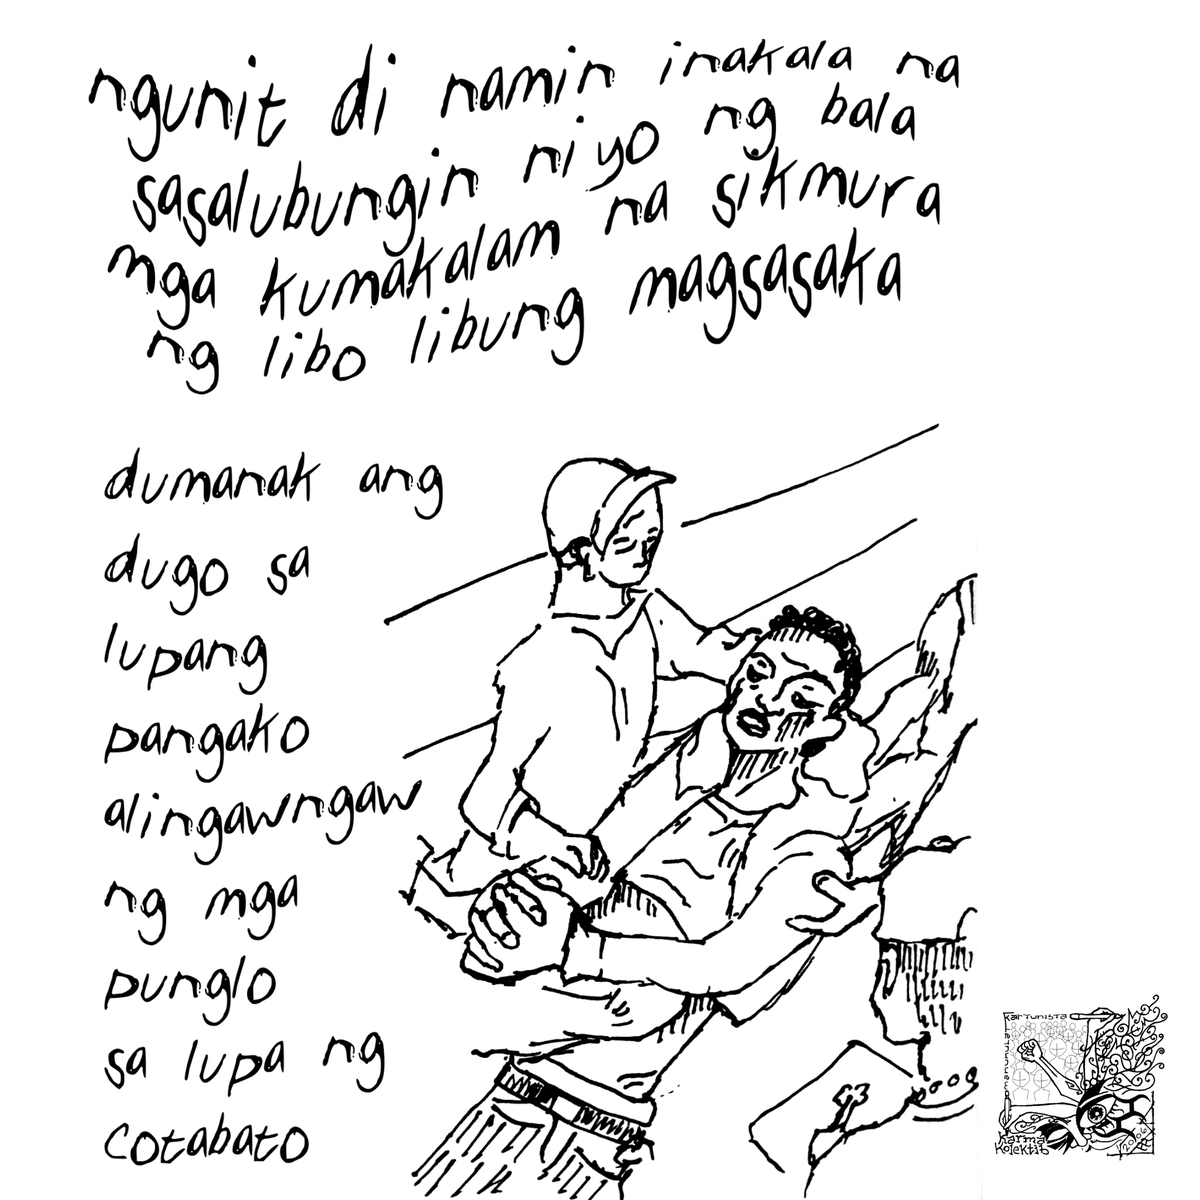 ngunit di namin inakala na
sasalubungin niyo ng bala
mga kumakalam na sikmura
ng libo libung magsasaka
dumanak ang
dugo sa
lupang
pangako
alingawngaw
ng mga
punglo
sa lupa ng
cotabato
Kartunista
Karma
Kolektib